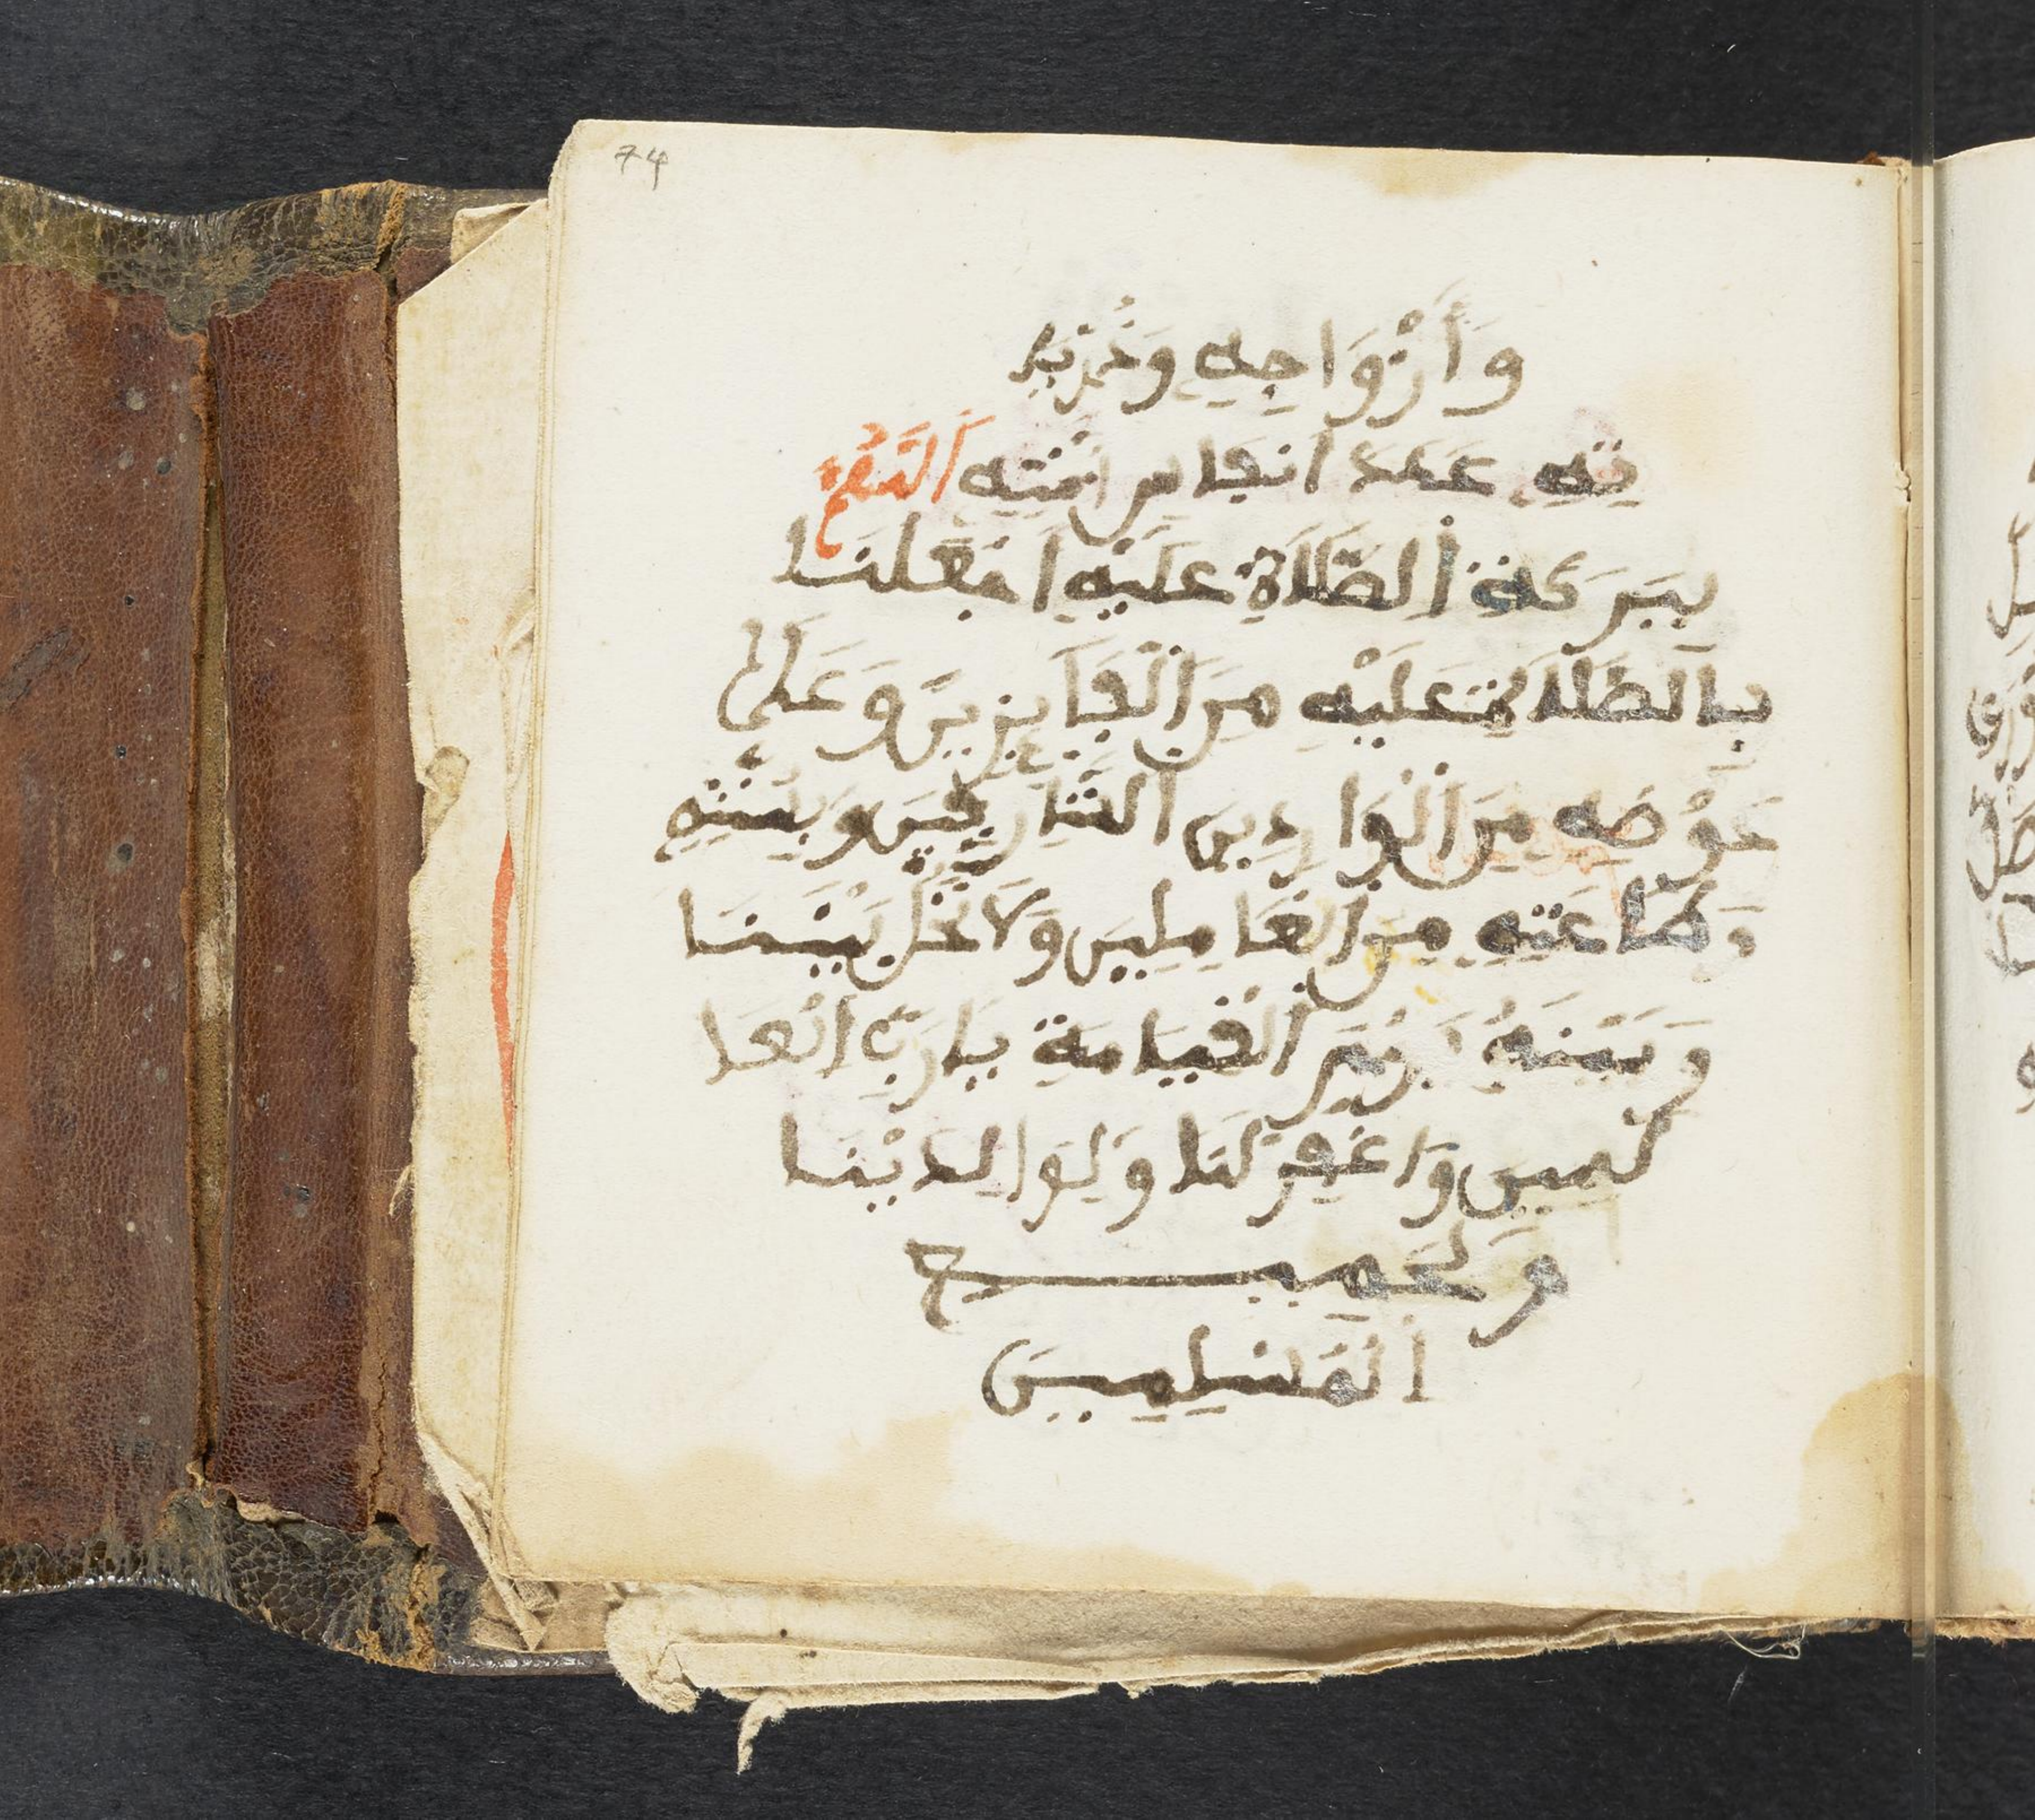 74
وَأَزْوَاجِهِ وَذُرِّيَّ
تِهِ عَدَدَ أَنْفَاسِ أُمَّتِهِ اَللَّهُمَّ
بِبَرَكَةِ اِلصَّلَاةِ عَلَيْهِ اَجْعَلْنَا
بِالصَّلَاةِ عَلَيْهِ مِنَ الْفَآيِزِينَ وَعَلَى
حَوْضِهِ مِنَ الْوَارِدِينَ الشَّارِبِينَ وَبِسُنَّتِهِ
وَطَاعَتِهِ مِنَ الْعَامِلِينَ وَلَا تَحُلْ بَيْنَنَا
وَبَيْنَهُ يَوْمَ الْقِيَامَةِ يَا رَبَّ الْعَا
لَمِينَ وَاغْفِرْ لَنَا وَلِوَالِدَيْنَا
وَلِجَمِيعِ
الْمُسْلِمِينَ